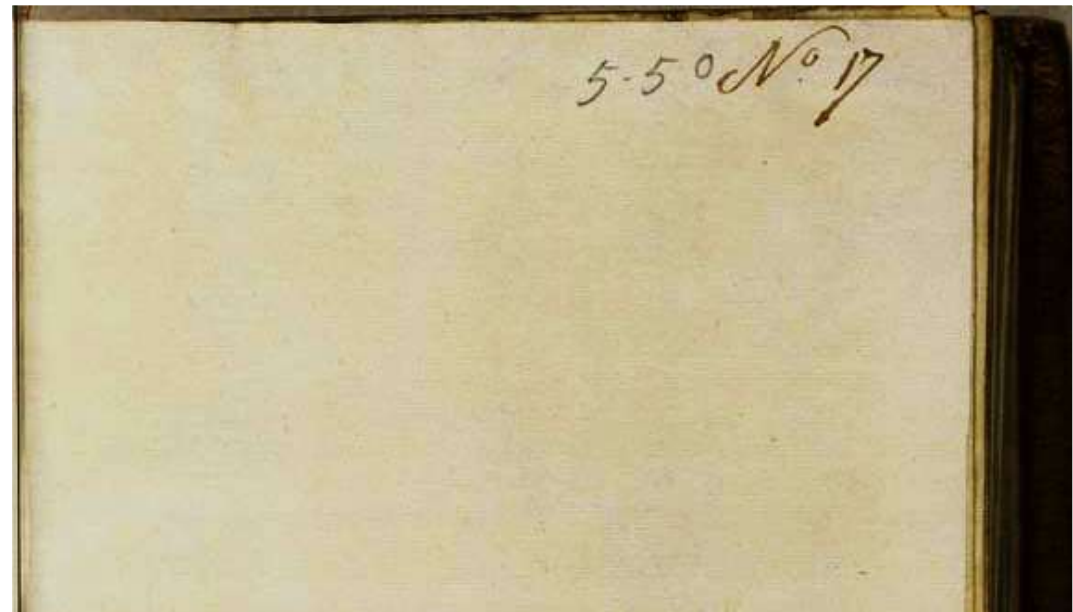 5-5º Nº 17